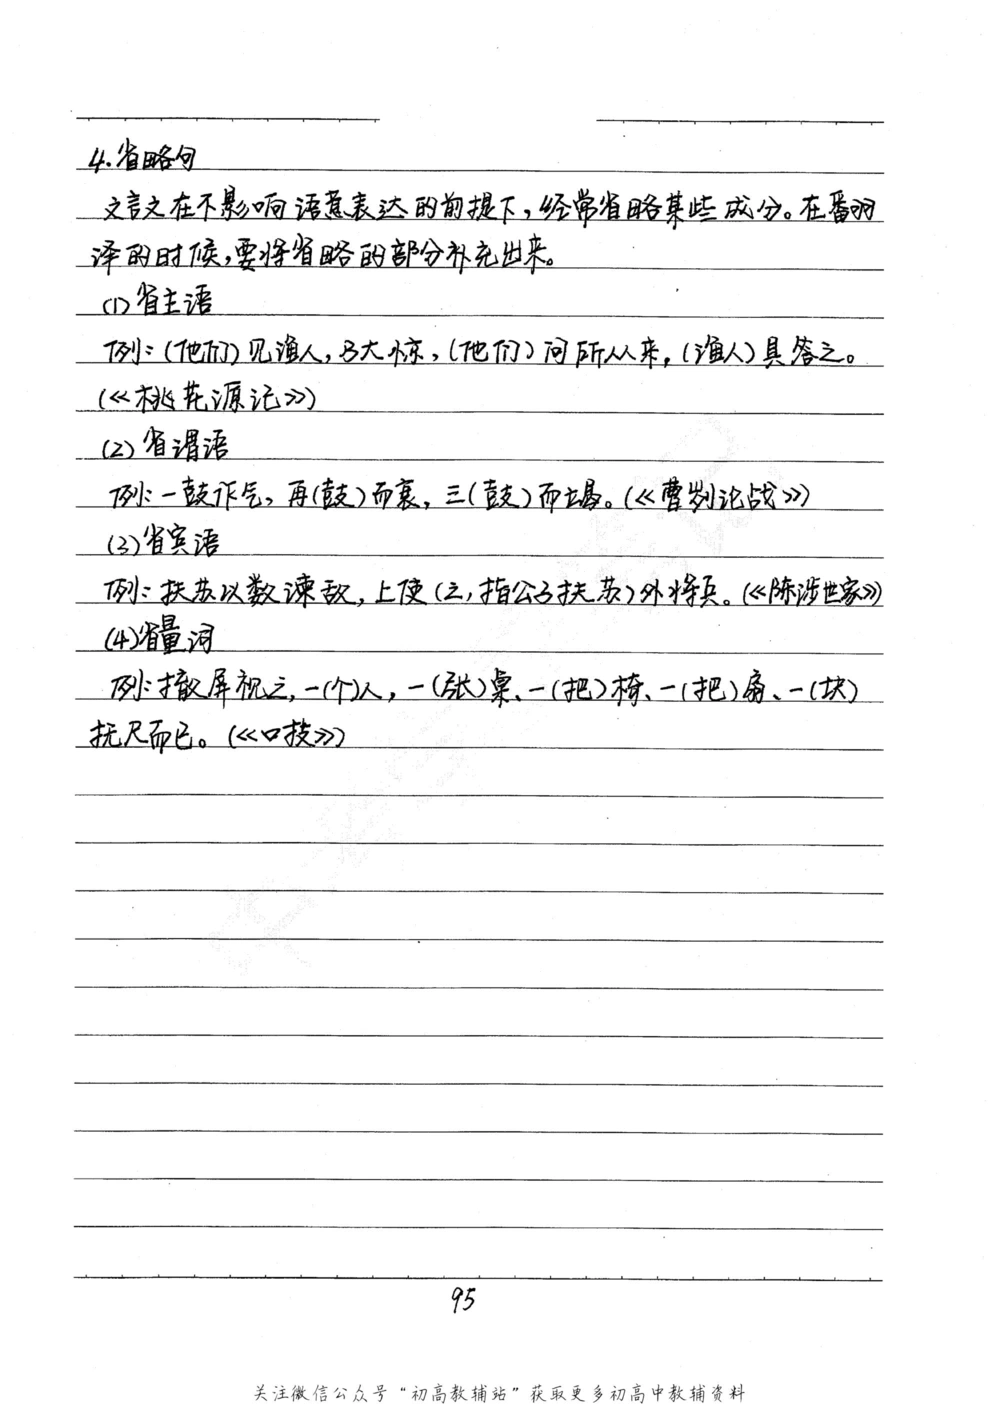 4.省略句
文言文在不影响语意表达的前提下，经常省略某些成分。在翻
译的时候，要将省略的部分补充出来。
(1)省主语
例：(他们)见渔人，乃大惊，(他们)问所从来，(渔人)具答之。
(《桃花源记》)
(2)省谓语
例：一鼓作气，再(鼓)而衰，三(鼓)而竭。(《曹刿论战》)
(3)省宾语
例：扶苏以数谏故，上使(之，指公子扶苏)外将兵。(《陈涉世家》)
(4)省量词
例：撤屏视之，一(个)人，一(张)桌、一(把)椅、一(把)扇、一(块)
抚尺而已。(《口技》)
95
关注微信公众号“初高教辅站”获取更多初高中教辅资料